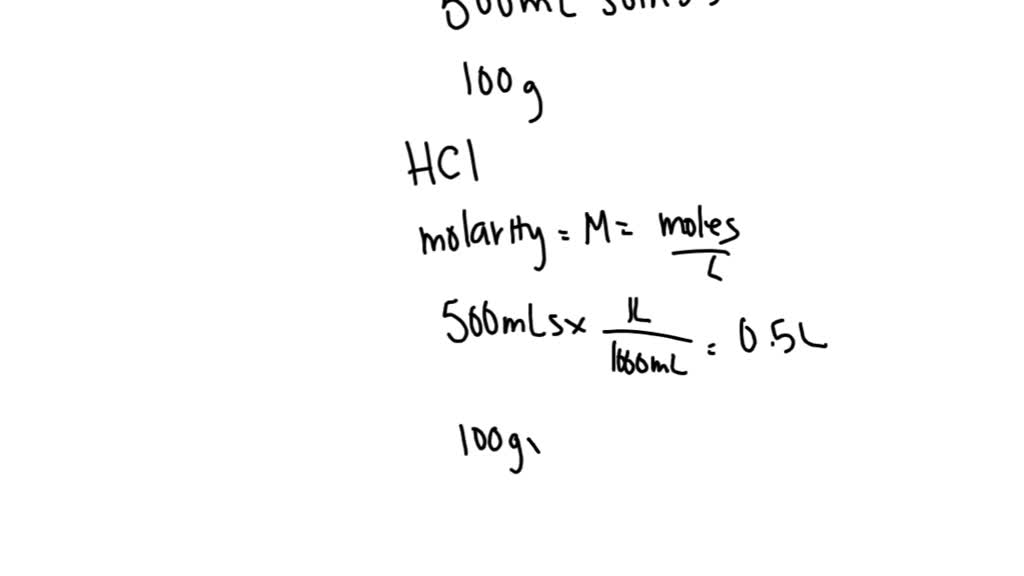 500mL
100g
HCl
molarity = M = moles / L
500mLs x 1L / 1000mL = 0.5L
100g